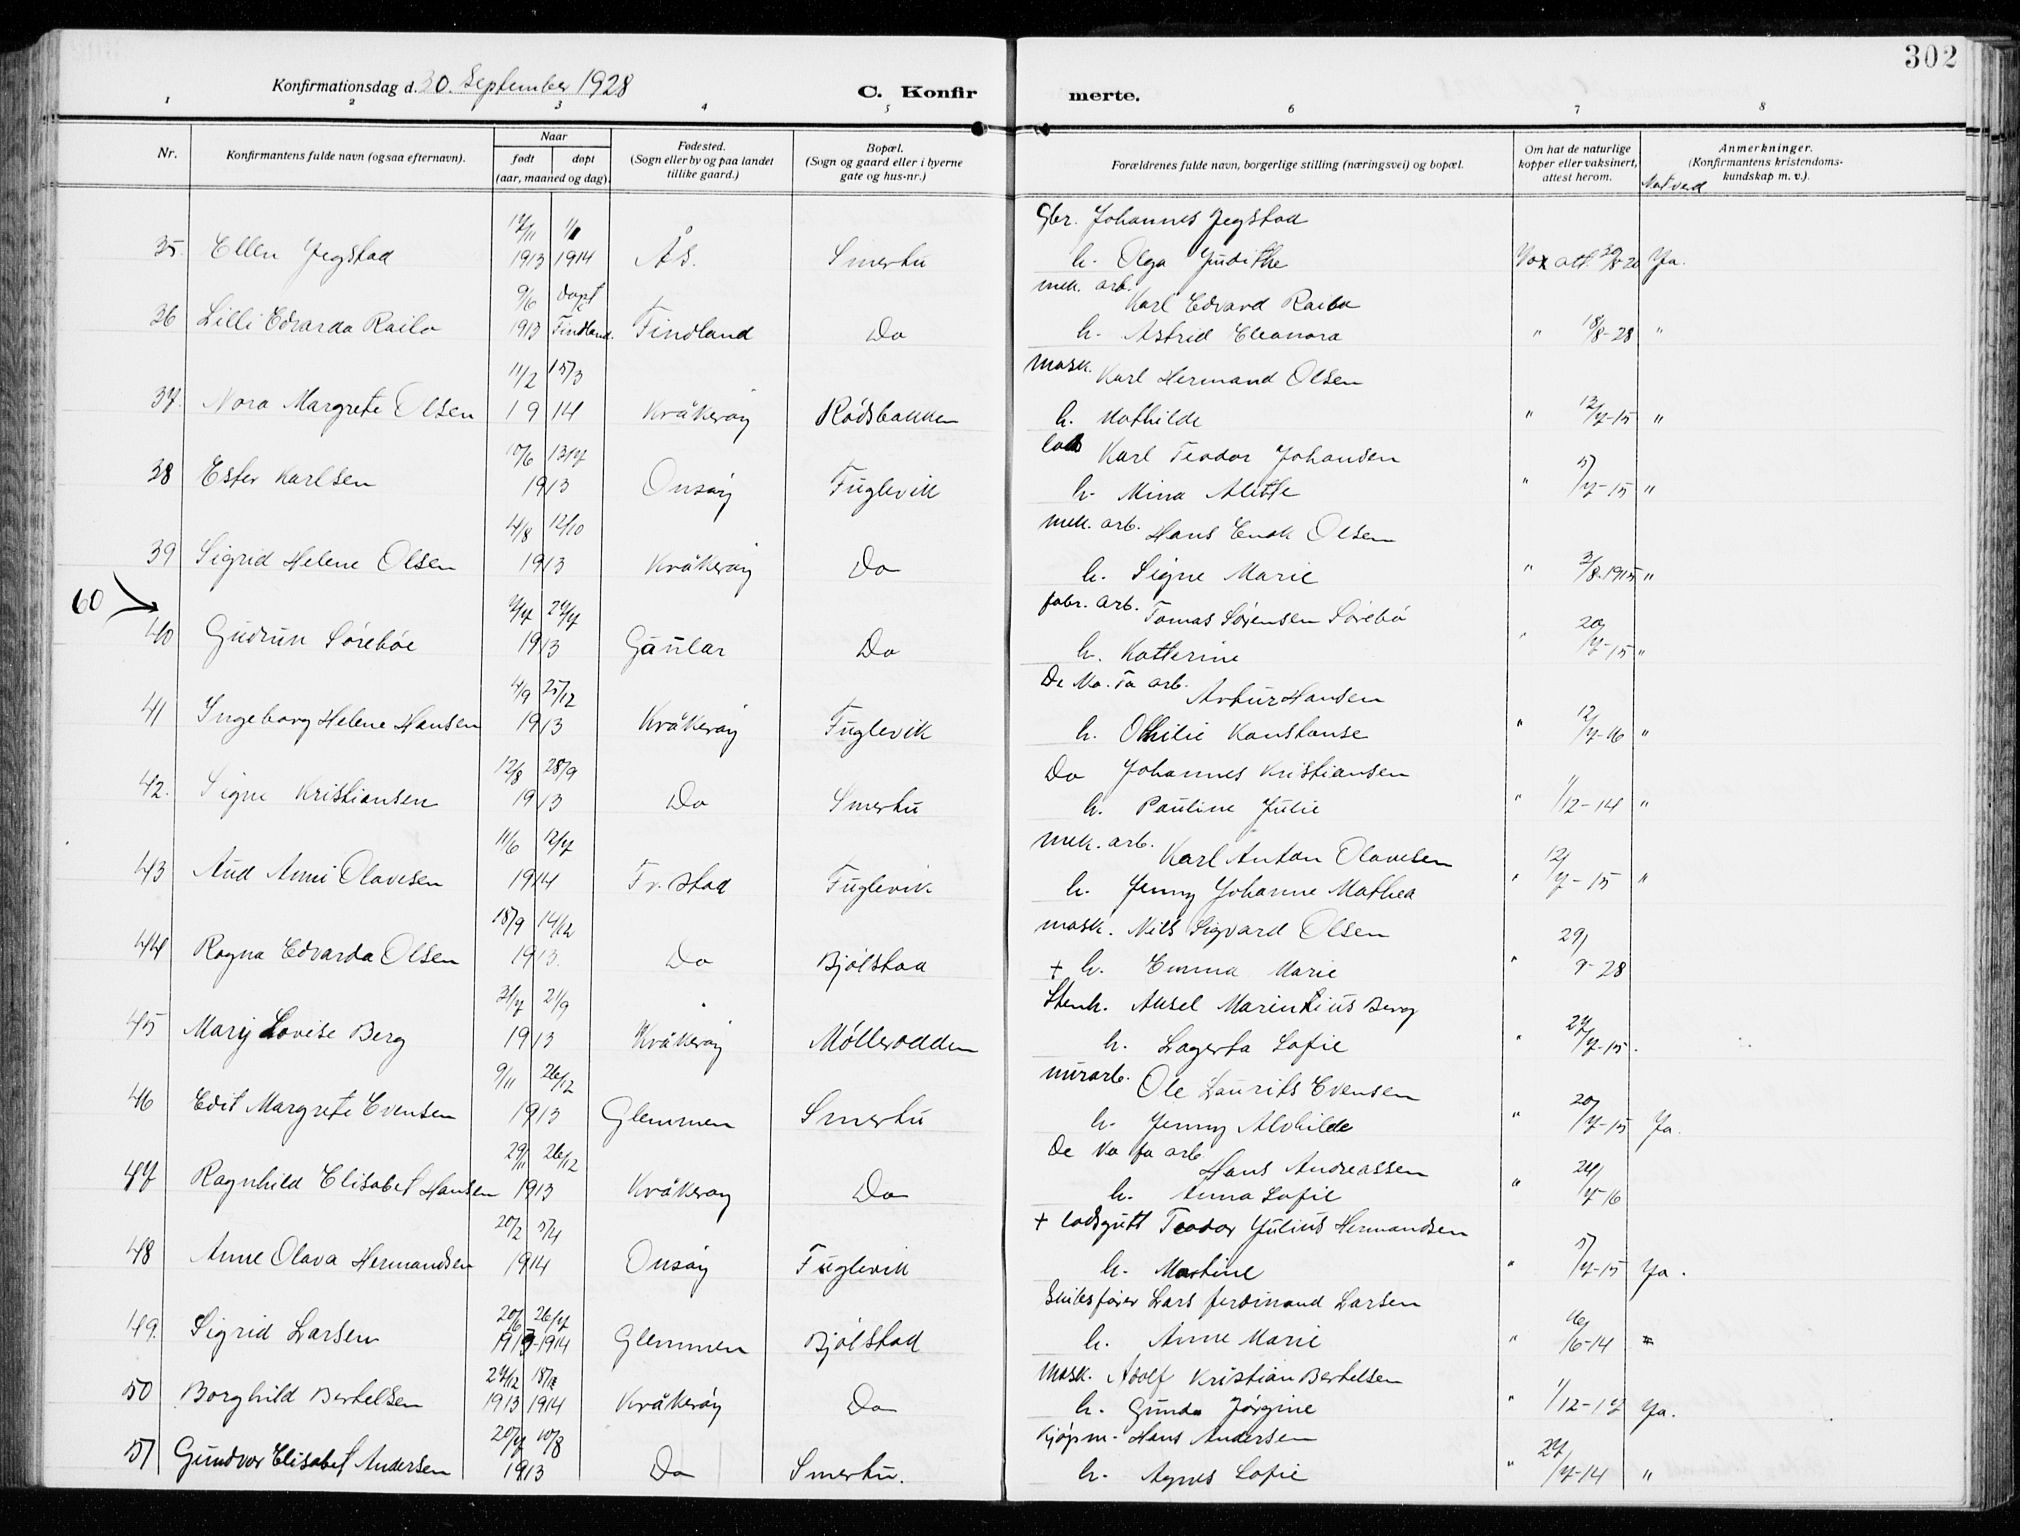 302
Konfirmationsdag d. 30. September 1928
C. Konfir merte.
1 2 3 4 5 6 7 8
Nr.
Konfirmantens fulde navn (ogsaa efternavn).
Naar
født døpt
(aar, maaned og dag).
Fødested.
(Sogn eller by og paa landet
tillike gaard.)
Bopæl.
(Sogn og gaard eller i byerne
gate og hus-nr.)
Forældrenes fulde navn, borgerlige stilling (næringsvei) og bopæl.
Om hat de naturlige
kopper eller vaksinert,
attest herom.
Anmerkninger.
(Konfirmantens kristendoms-
kundskap m. v.).
Gbr. Johannes Jegstad
35. Ellen Jegstad 1913 1914 Ås. Smertu h. Olga Judithe Vax att. Ja.
mek. arb. Karl Edvard Railo
36 Lilli Edvarda Railo 9/6 1913 døpt i Findland. Findland Do h. Astrid Eleonora " 18/8-28 "
mask. Karl Hermand Olsen
37. Nora Margrete Olsen 11/2 15/3 1914 Kråkerøy Rødsbakken h. Mathilde " 12/7-15 "
Karl Teodor Johansen
38 Ester Karlsen 13/7 1913 Onsøy Fuglevik h. Mina Alette " 5/7-15 "
mek. arb. Hans Enok Olsen
39 Sigrid Helene Olsen 4/8 12/10 1913 Kråkerøy Do h. Signe Marie " 3/8-1915 "
60
fabr. arb. Tomas Sørensen Sørebø
40 Gudrun Sørebøe 1913 Gaular Do h. Katterine " 20/7-15 "
De No. Fa arb. Artur Hansen
41 Ingeborg Helene Hansen 4/9 25/12 1913 Kråkerøy Fuglevik h. Othilie Konstanse " 12/7-16 "
Do Johannes Kristiansen
42. Signe Kristiansen 12/8 28/9 1913 Do Smertu h. Pauline Julie " 1/12-14 "
mek. arb. Karl Anton Olavesen
43 Aud Anni Olavesen 11/6 12/7 1914 Fr. stad Fuglevik h. Jenny Johanne Mathea " 12/7-15 "
mask. Nils Sigvard Olsen
44 Ragna Edvarda Olsen 18/9 14/12 1913. Do Bjølstad + h. Emma Marie " 29/9-28
Stenh. Aksel Marintius Berg
45 Mary Lovise Berg 31/7 21/9 1913 Kråkerøy Møllerodden h. Lagerta Sofie " 27/7-15.
murarb. Ole Laurits Evensen
46 Edit Margrete Evensen 9/11 26/12 1913 Glemmen Smertu h. Jenny Alvhilde " 20/7-15 Ja.
De No fa arb. Hans Andreassen
47 Ragnhild Elisabet Hansen 29/11 26/12 1913 Kråkerøy Do h. Anna Sofie " 24/7-16
+ losgutt Teodor Julius Hermandsen
48 Anne Olava Hermandsen 20/2 5/4 1914 Onsøy Fuglevik h. Martine " 5/7-15 Ja.
Skibsfører Lars Ferdinand Larsen
49. Sigrid Larsen 20/6 26/7 1913-1914 Glemmen Bjølstad h. Anne Marie " 16/6-14 "
Mask. Adolf Kristian Bertelsen
50 Borghild Bertelsen 1913 1914 Kråkerøy Do h. Gunda Jørgine " 1/12-17 Ja.
Kjøpm. Hans Andersen
51 Gundvor Elisabet Andersen 20/7 10/8 1913 Do Smertu. h. Agnes Sofie " 27/7-14 "